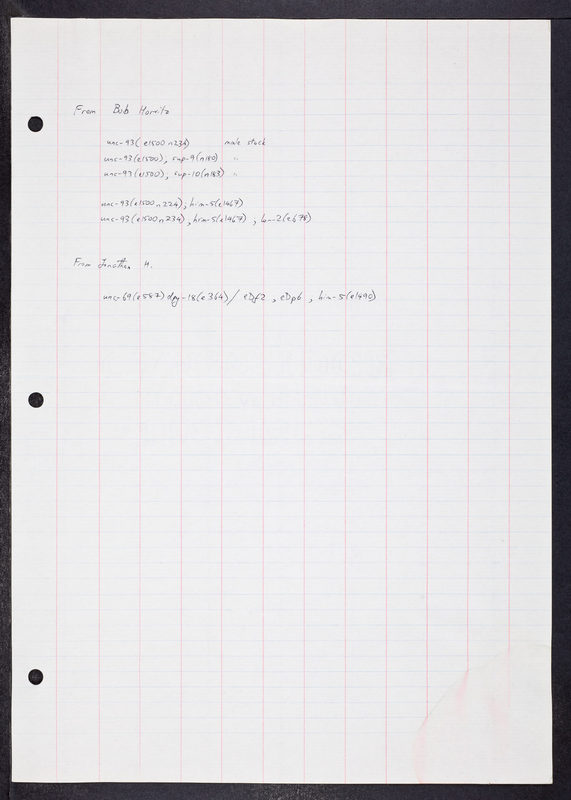 From Bob Horvitz
unc-93(e1500 n234) male stock
unc-93(e1500), sup-9(n180) "
unc-93(e1500), sup-10(n183) "
unc-93(e1500 n224), him-5(e1467)
unc-93(e1500 n234), him-5(e1467), lon-2(e678)
From Jonathan H.
unc-69(e587) dpy-18(e364)/ eDf2, eDp6, him-5(e1490)